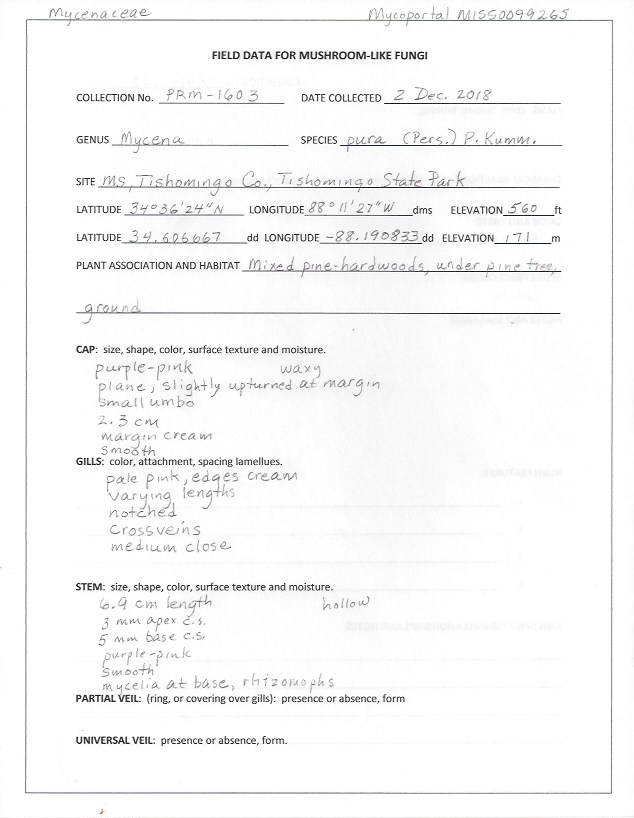 Mycenaceae Mycoportal MISS0099265
FIELD DATA FOR MUSHROOM-LIKE FUNGI
COLLECTION No. PRM-1603 DATE COLLECTED 2 Dec. 2018
GENUS Mycena SPECIES pura (Pers.) P. Kumm.
SITE MS, Tishomingo Co., Tishomingo State Park
LATITUDE 34°36'24"N LONGITUDE 88°11'27"W dms ELEVATION 560 ft
LATITUDE 34.606667 dd LONGITUDE -88.190833 dd ELEVATION 171 m
PLANT ASSOCIATION AND HABITAT Mixed pine-hardwoods, under pine tree,
ground
CAP: size, shape, color, surface texture and moisture.
purple-pink waxy
plane, slightly upturned at margin
small umbo
2.3 cm
margin cream
smooth
GILLS: color, attachment, spacing lamellues.
pale pink, edges cream
varying lengths
notched
crossveins
medium close
STEM: size, shape, color, surface texture and moisture.
6.9 cm length hollow
3 mm apex c.s.
5 mm base c.s.
purple-pink
smooth
mycelia at base, rhizomophs
PARTIAL VEIL: (ring, or covering over gills): presence or absence, form
UNIVERSAL VEIL: presence or absence, form.